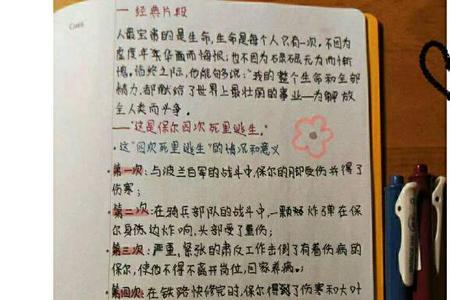 一 经典片段
人最宝贵的是生命,生命是每个人只有一次。不因为
虚度年华而悔恨;也不因为碌碌无为而惭
愧。临终之际,他能够说:"我的整个生命和全部
精力,都献给了世界上最壮丽的事业—为解放
全人类而斗争。
——"这是保尔四次死里逃生。"
·这"四次死里逃生"的情况和意义
第一次:与波兰白军的战斗中,保尔的脚受伤并得了
伤寒;
第二次:在骑兵部队的战斗中,一颗炸弹在保
尔身边炸响,头部受了重伤;
第三次:严重,紧张的肃反工作击倒了有着伤病的
保尔,使他不得不离开岗位,回家养病。;
第四次:在铁路快修完时,保尔得到了伤寒和大叶